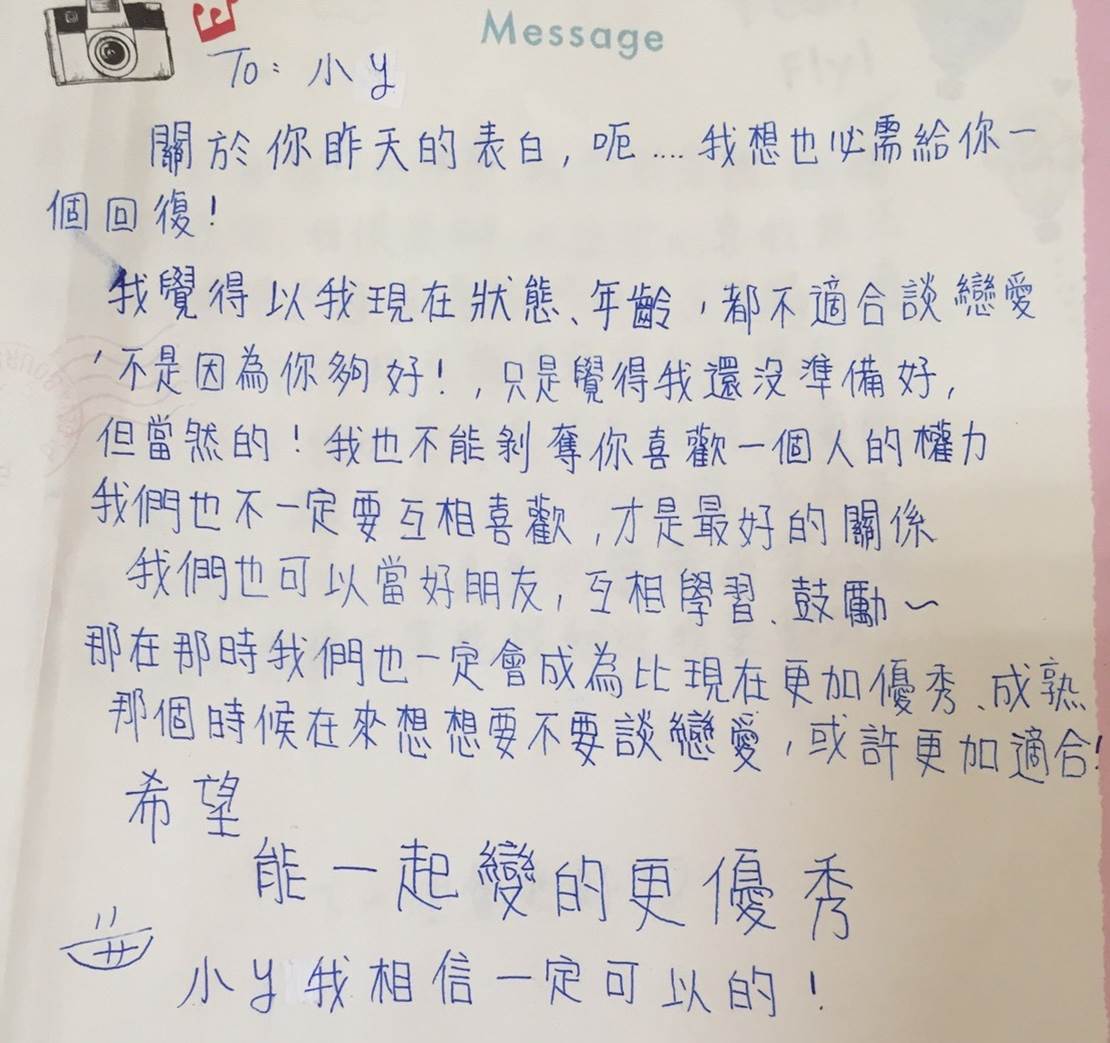 Message
To：小y
關於你昨天的表白，呃....我想也必需給你一
個回復！
我覺得以我現在狀態、年齡，都不適合談戀愛
，不是因為你夠好！，只是覺得我還沒準備好，
但當然的！我也不能剝奪你喜歡一個人的權力
我們也不一定要互相喜歡，才是最好的關係
我們也可以當好朋友，互相學習、鼓勵～
那在那時我們也一定會成為比現在更加優秀、成熟
那個時候在來想想要不要談戀愛，或許更加適合！
希望
能一起變的更優秀
小y我相信一定可以的！